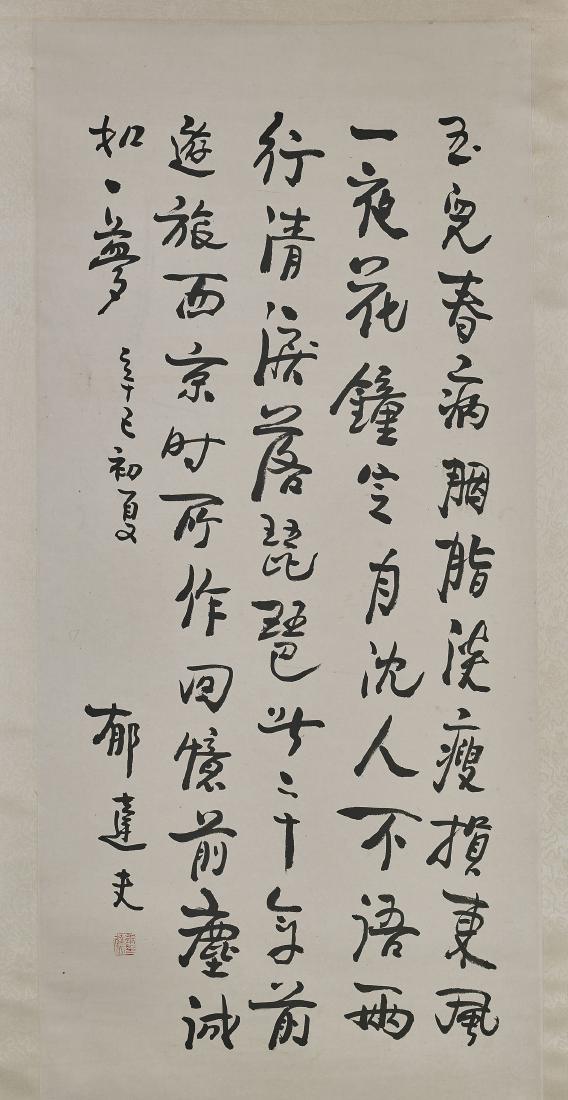 玉兒春病胭脂淡瘦損東風
一夜花鐘定月沈人不语兩
行清淚落琵琶此二十年前
遊旅西京时所作回憶前塵誠
如一夢 辛巳初夏
郁達夫